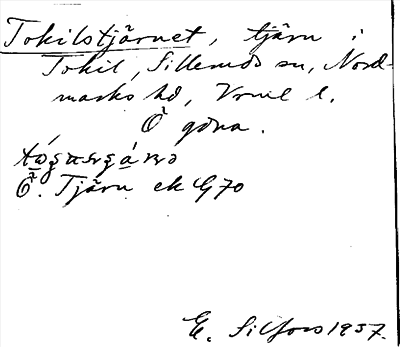 Tokilstjärnet, tjärn i
Tokil, Silleruds sn, Nord-
marks hd, Vrml l.
Ö gdna.
Ö. Tjärn ek G70
E. Silfors 1937.